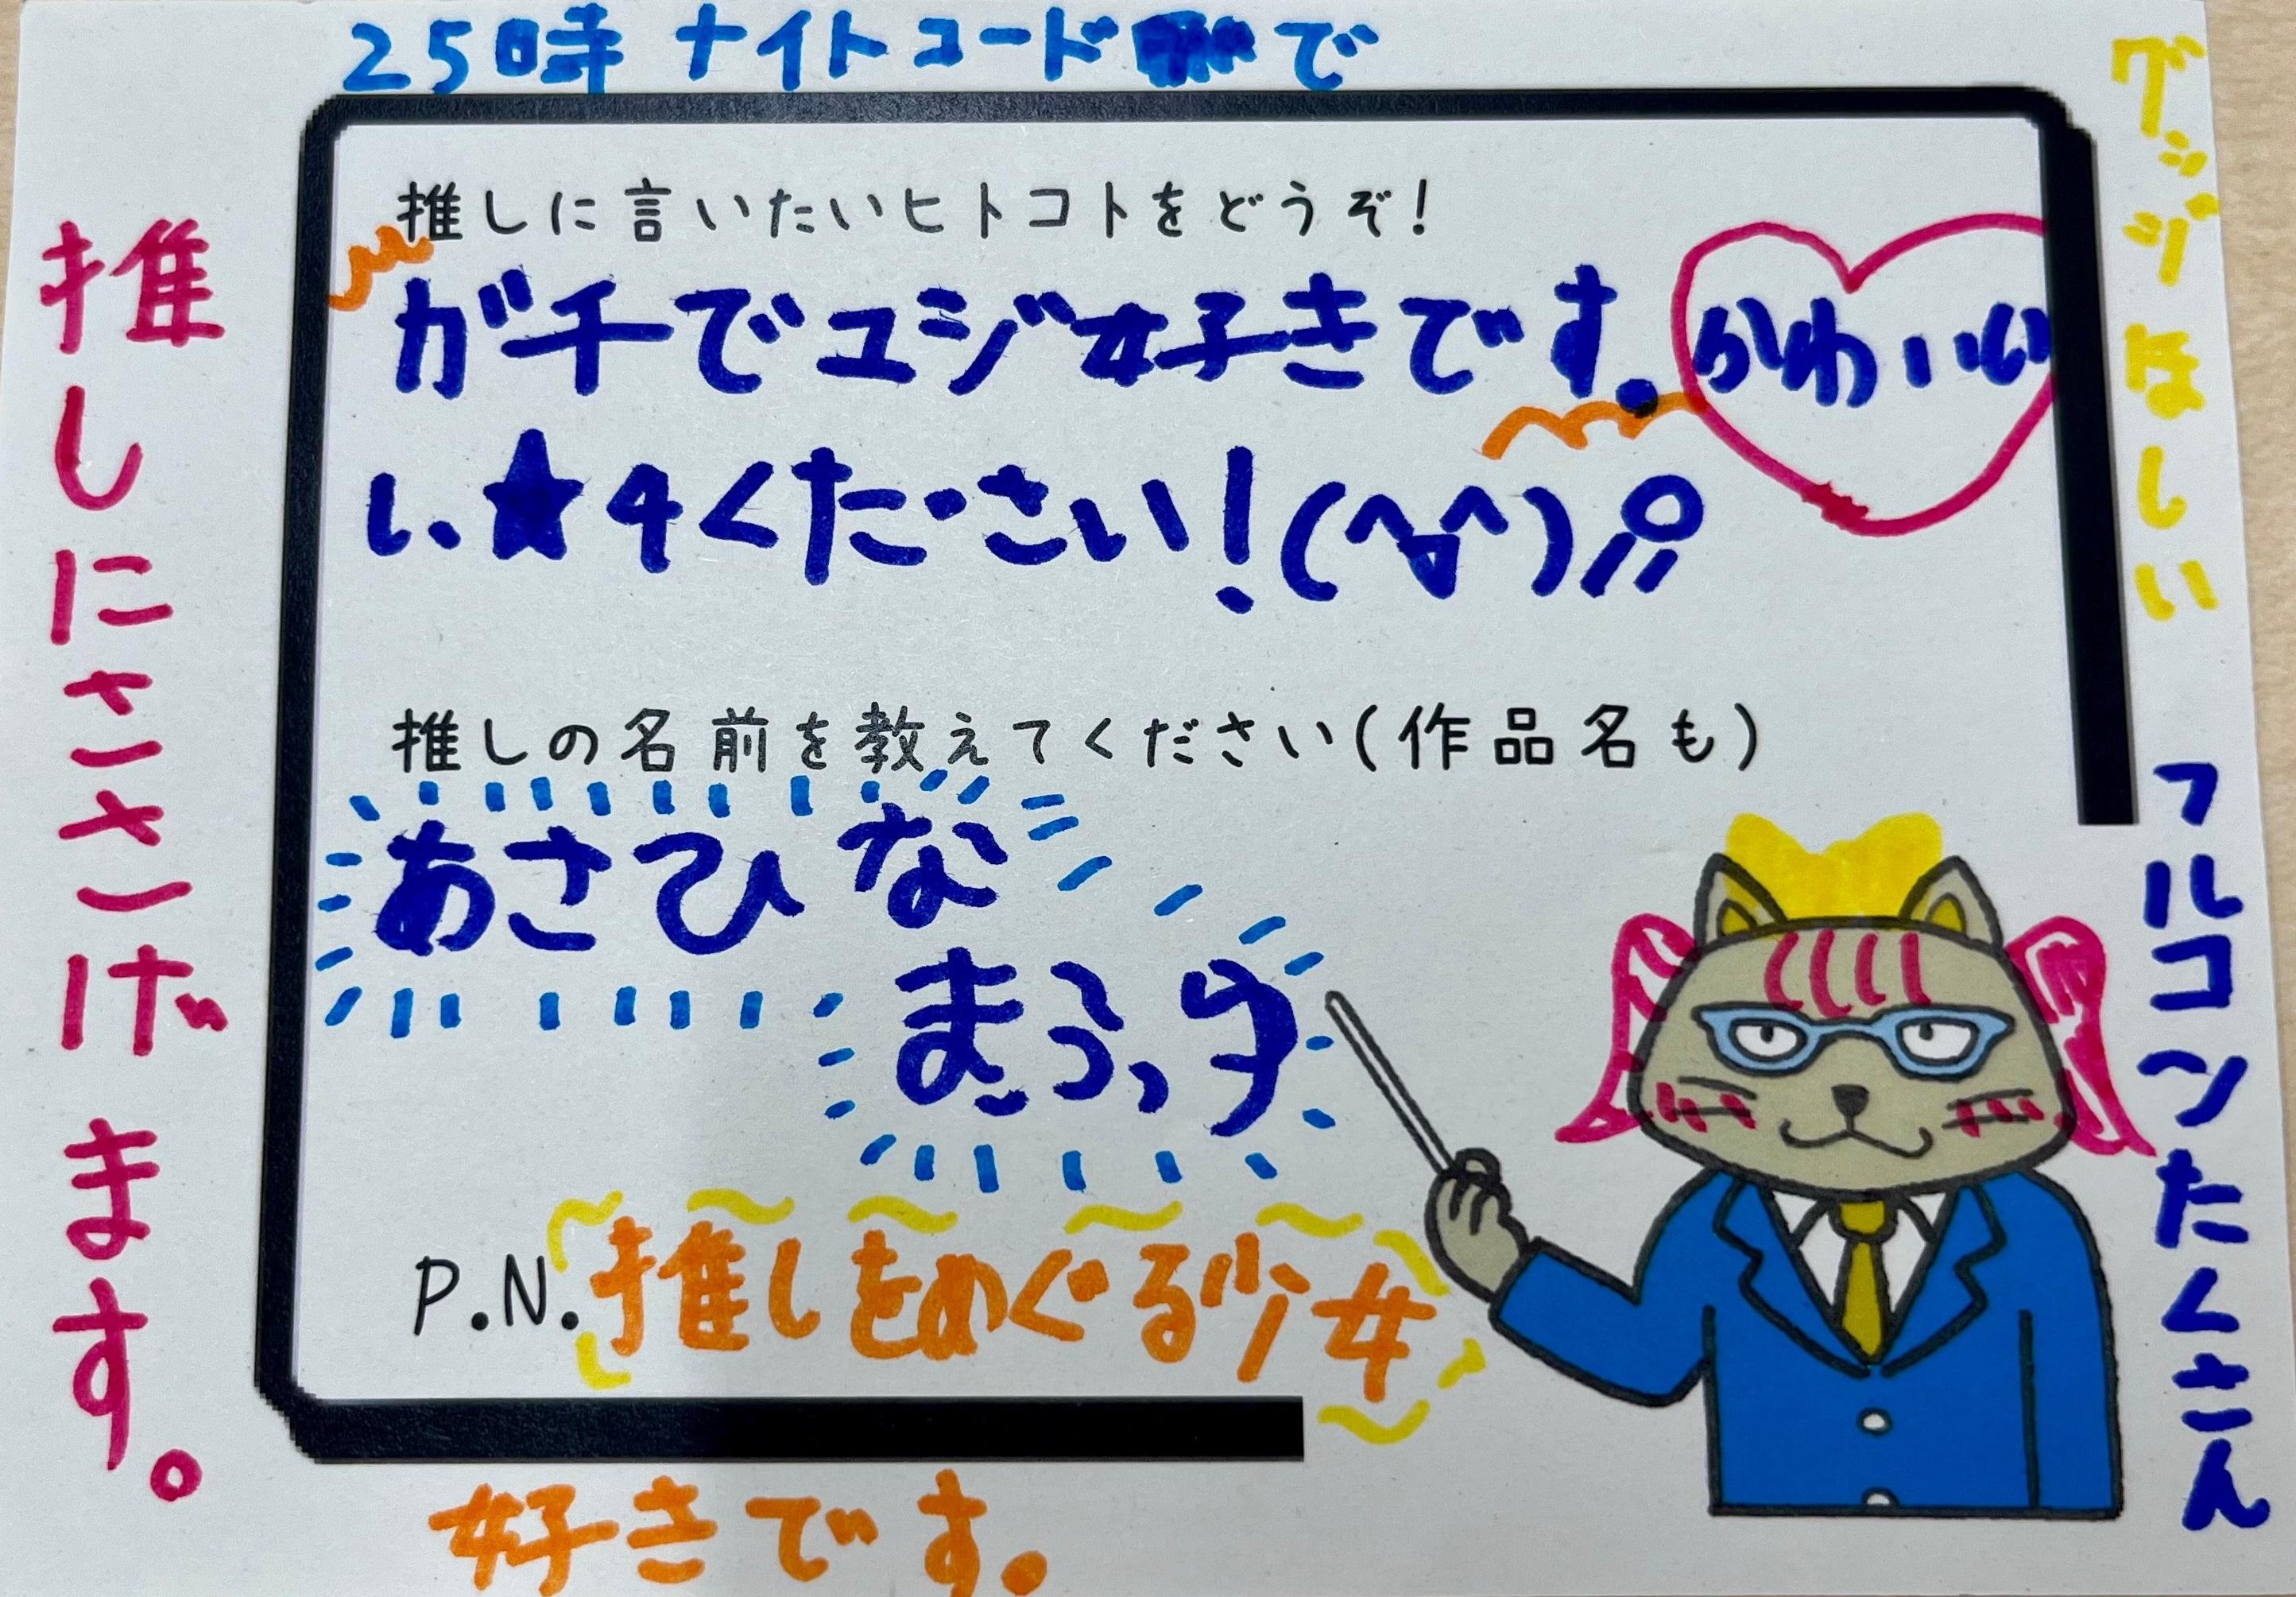 25時 ナイトコードで
推しに言いたいヒトコトをどうぞ!
ガチでユジ好きです。かわいい
し、★4ください!(^▽^)
推しの名前を教えてください(作品名も)
あさひな
まふゆ
P.N.推しをめぐる少女
好きです。
推しにささげます。
グッヅほしい
フルコンたくさん